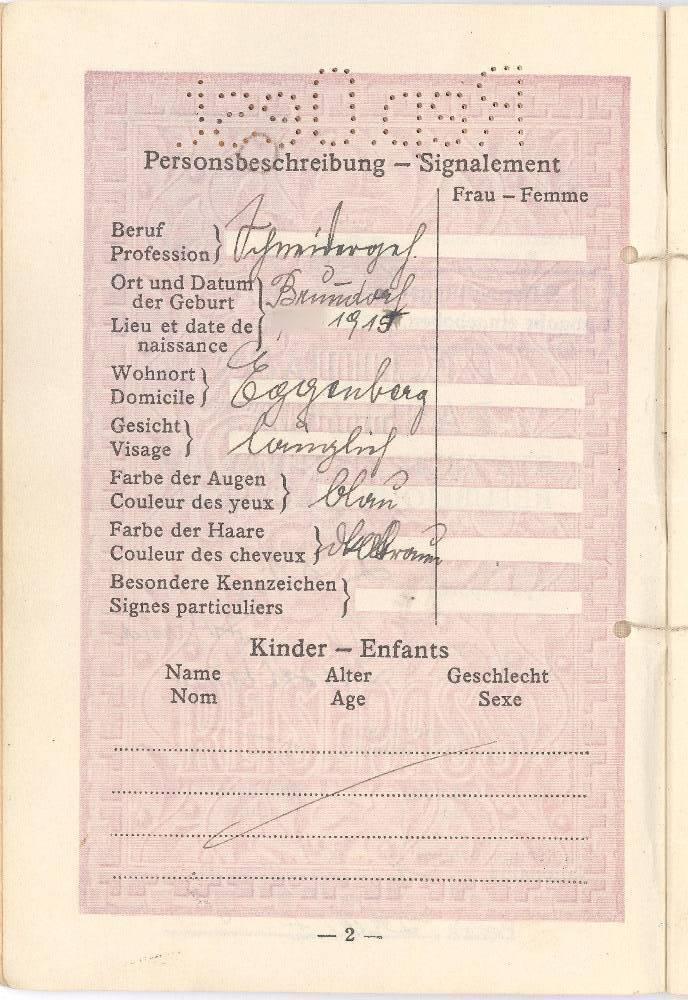 Rep. Oest.
Personsbeschreibung – Signalement
Frau – Femme
Beruf
Profession } Schneidergeh.
Ort und Datum
der Geburt } Brunndorf
Lieu et date de 1915
naissance
Wohnort
Domicile } Eggenberg
Gesicht
Visage } länglich
Farbe der Augen
Couleur des yeux } blau
Farbe der Haare
Couleur des cheveux }
Besondere Kennzeichen
Signes particuliers }
Kinder – Enfants
Name Alter Geschlecht
Nom Age Sexe
— 2 —